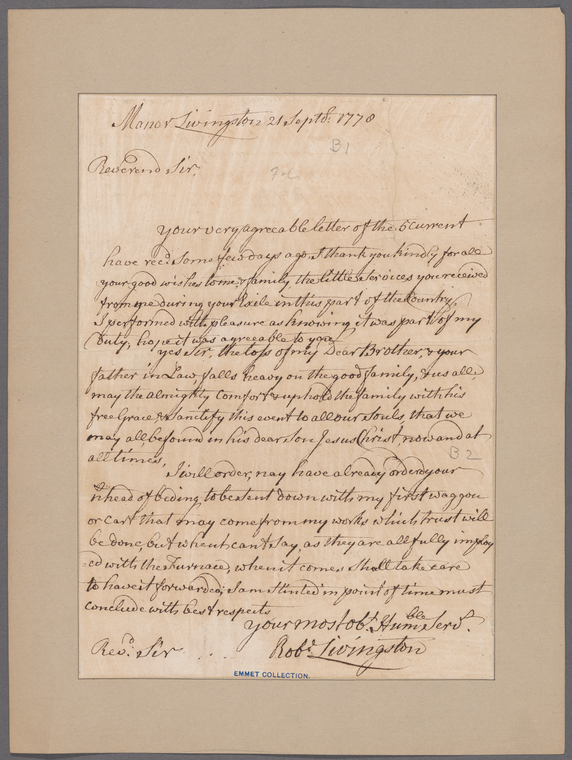 Manor Livingston 21 Septr. 1778
B1
Reverend Sir,
your very agreeable letter of the 5 Current
have recd. Some few days ago. I thank you kindly for all
your good wishes to me & family, the little Services you received
from me during your Exile in this part of the Country,
I performed with pleasure as knowing it was part of my
Duty, hope it was agreeable to you
yes Sir, the loss of my Dear Brother, & your
father in Law, falls heavy on the good family, & us all,
may the almighty comfort & uphold the family with his
free Grace & Sanctify this event to all our Souls, that we
may all be found in his dear Son Jesus Christ, now and at
all times.
B2
I will order, nay have already orderd your
head of beding to be sent down with my first waggon
or cart that may come from my works which trust will
be done, but when can't say, as they are all fully imploy
=ed with the Furnace, when it comes Shall take care
to have it forwarded, I am Stinted in point of time must
conclude with best respects
your most obt. Humble Servt.
Revd. Sir . . .
Robt. Livingston
EMMET COLLECTION.